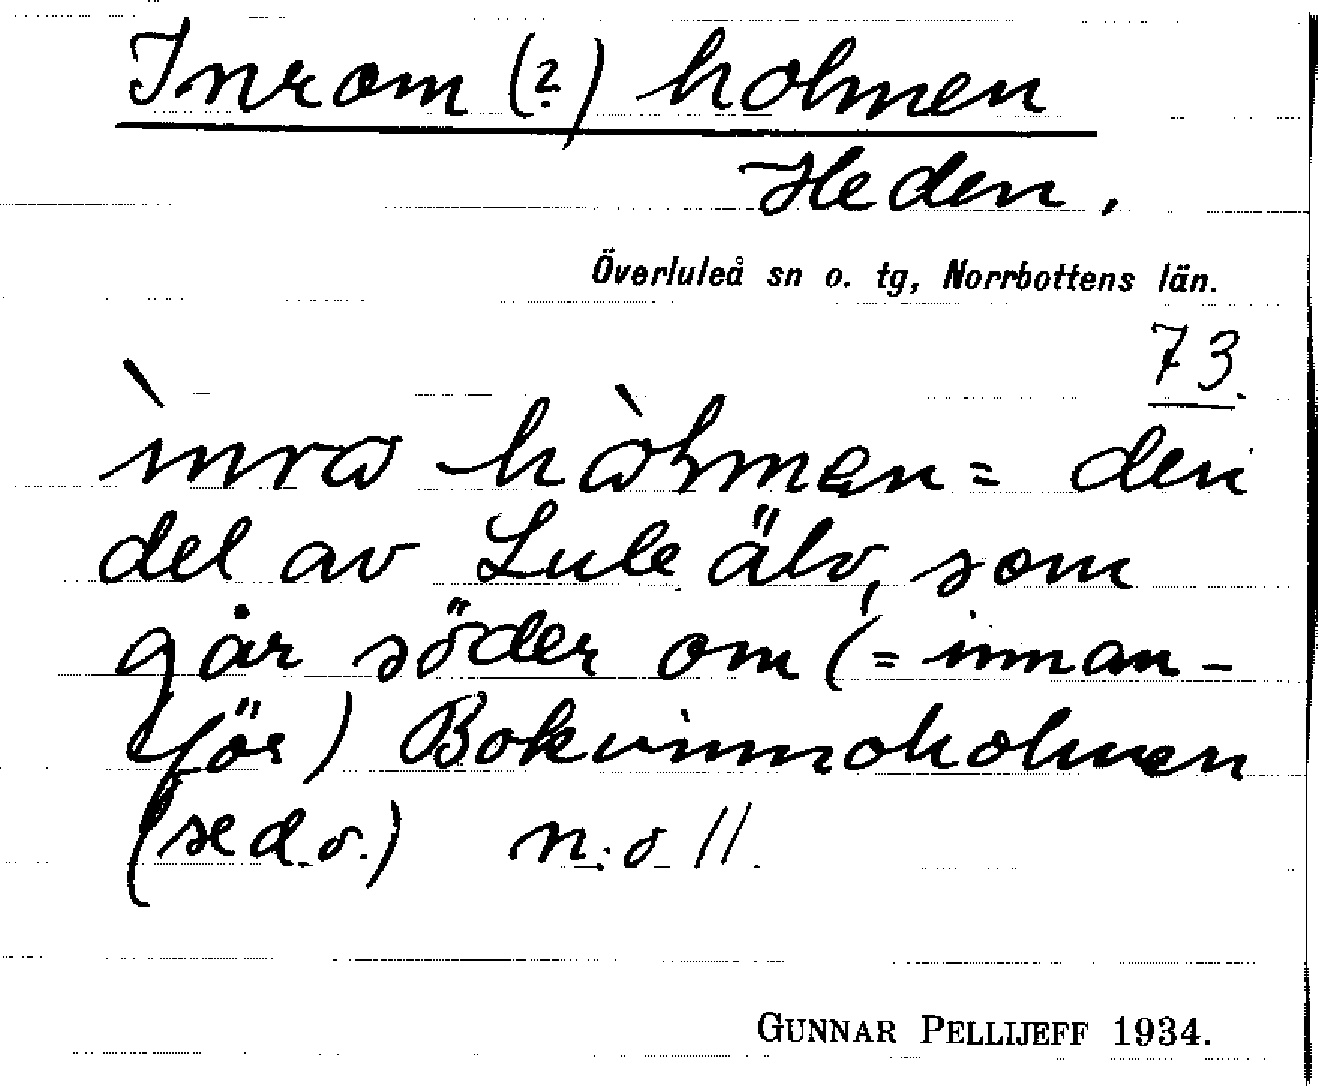 Inrom (?) holmen
Heden,
Överluleå sn o. tg, Norrbottens län.
73.
ìnrɷ hɷ̀lmɐn = den
del av Lule älv, som
går söder om (= innan-
för) Bokvinnoholmen
(se d.o.) n:o 11.
GUNNAR PELLIJEFF 1934.